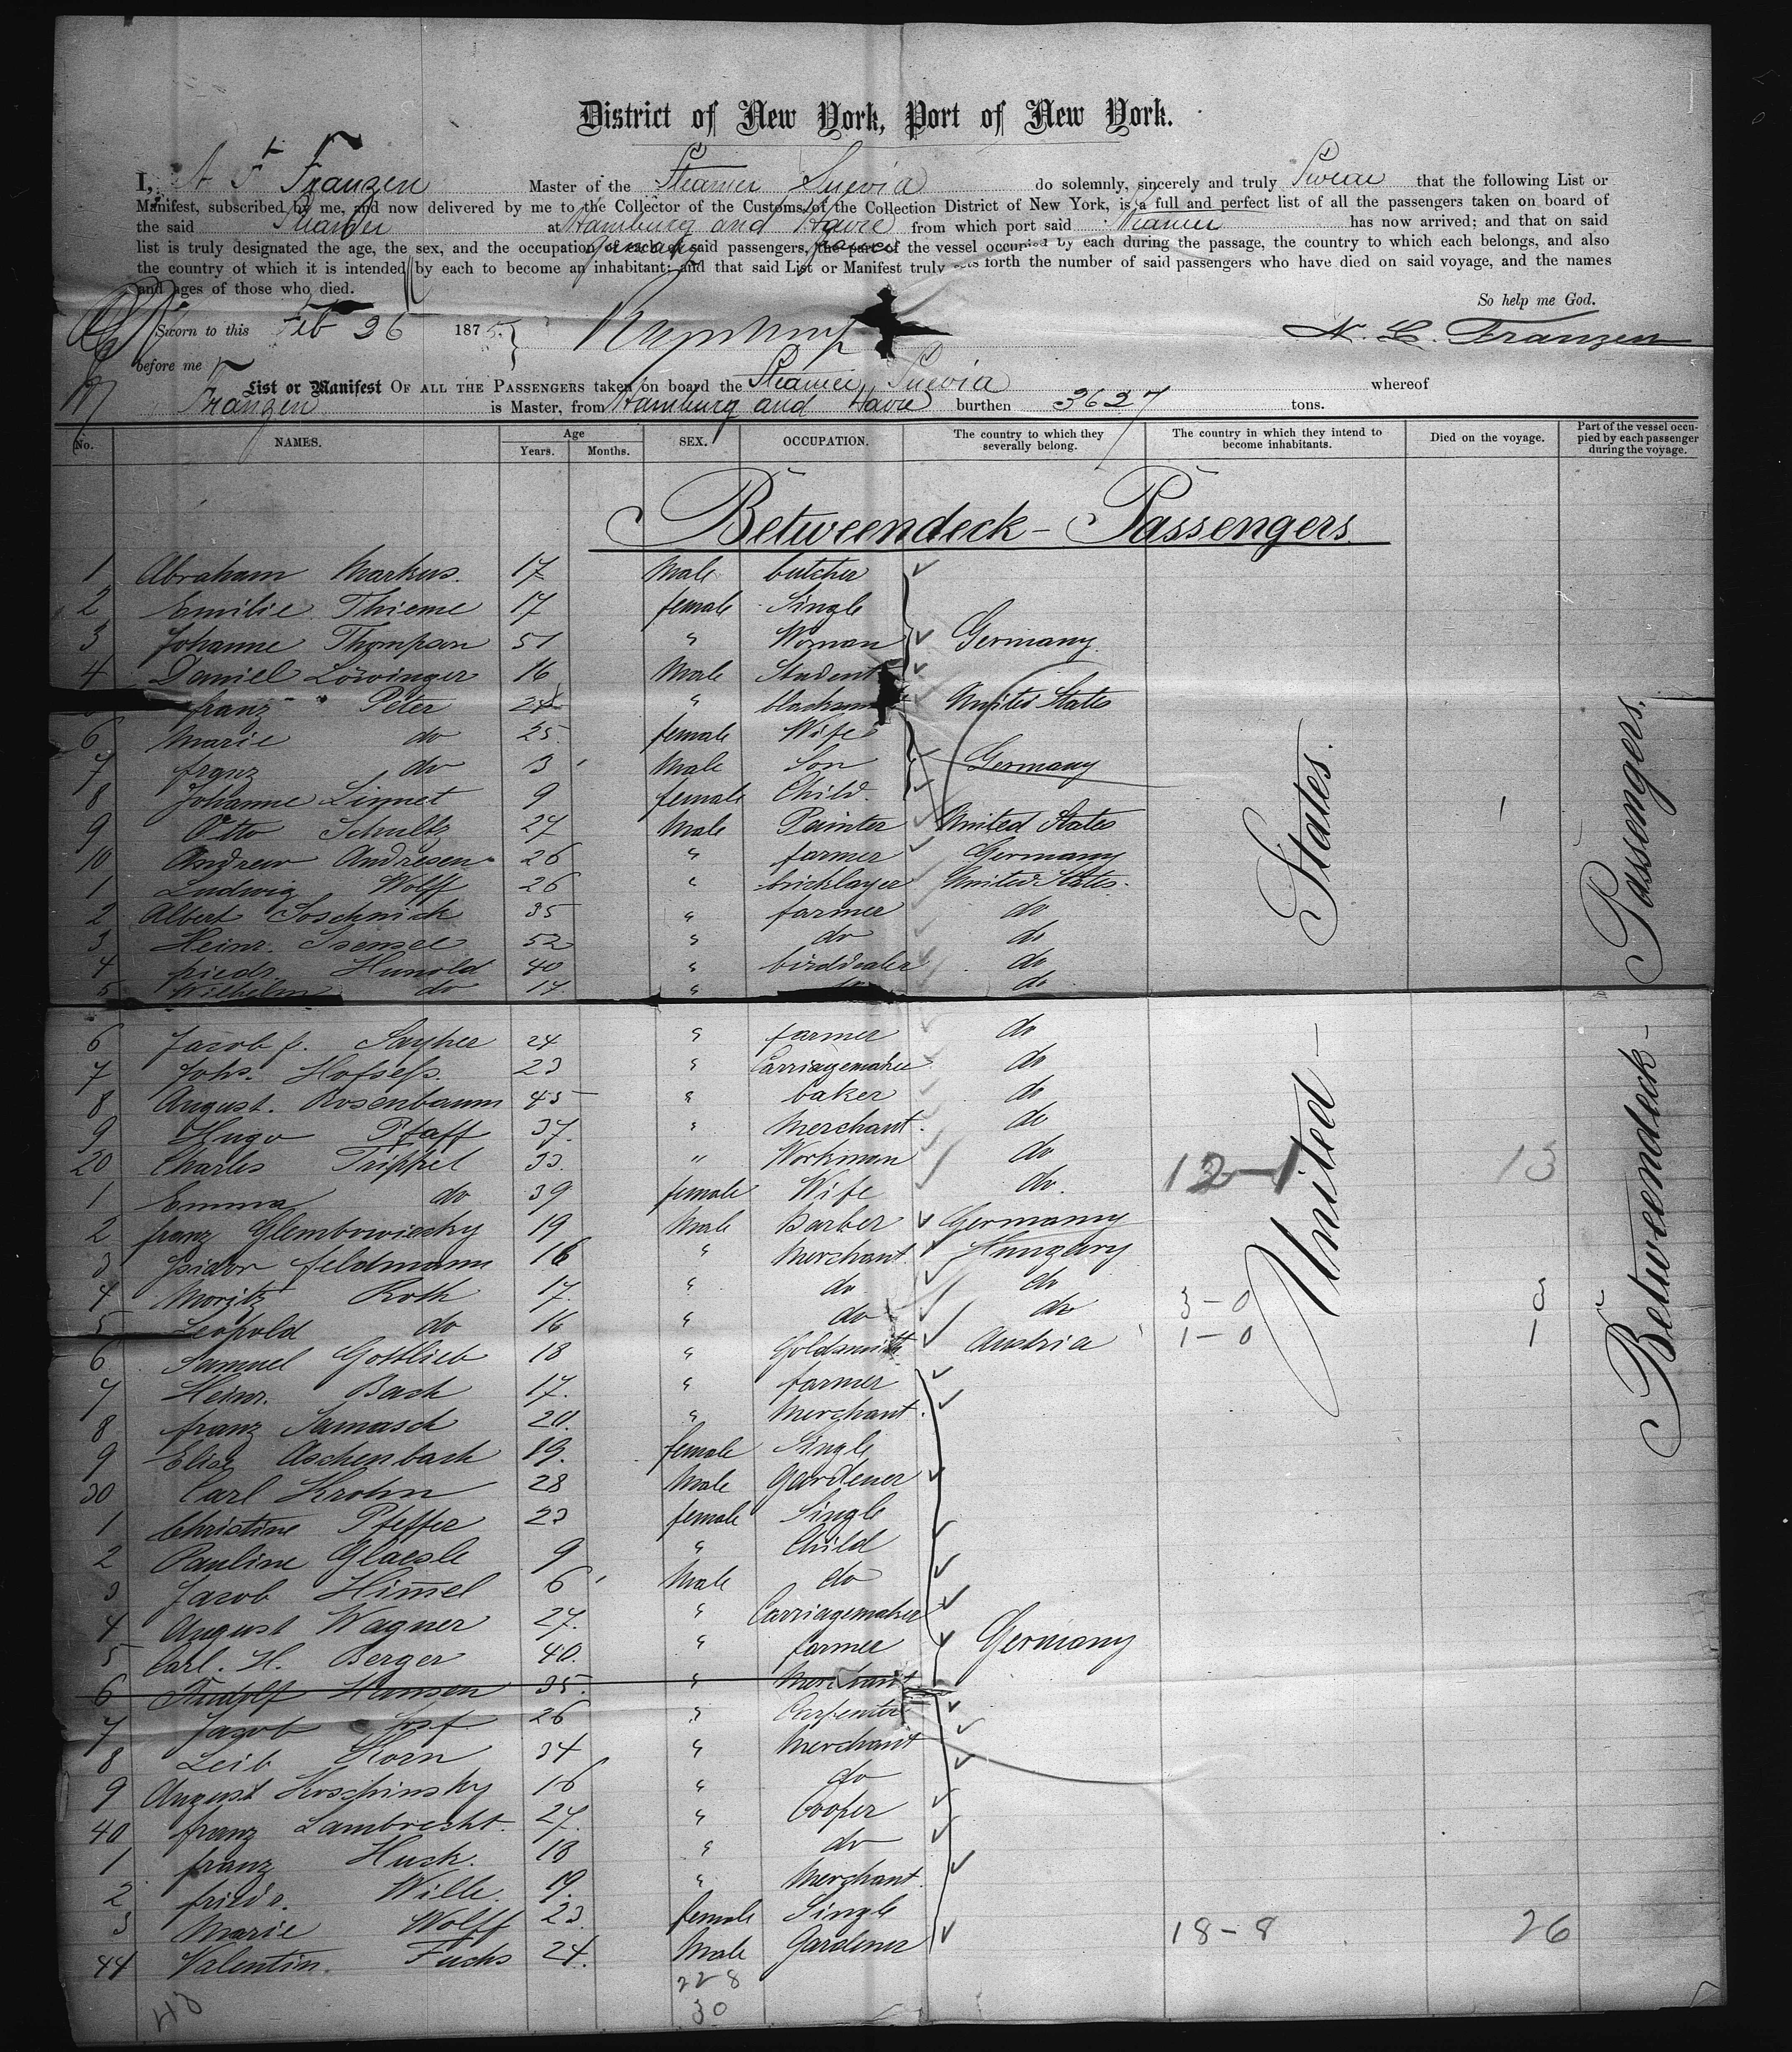 District of New York, Port of New York.
I, A F Franzen Master of the Steamer Suevia do solemnly, sincerely and truly Swear that the following List or
Manifest, subscribed by me, and now delivered by me to the Collector of the Customs of the Collection District of New York, is a full and perfect list of all the passengers taken on board of
the said Steamer at Hamburg and Havre from which port said Steamer has now arrived; and that on said
list is truly designated the age, the sex, and the occupation of each of said passengers, the part of the vessel occupied by each during the passage, the country to which each belongs, and also
the country of which it is intended by each to become an inhabitant; and that said List or Manifest truly sets forth the number of said passengers who have died on said voyage, and the names
and ages of those who died.
So help me God.
Sworn to this Feb 26 1875
before me
Franzen
List or Manifest OF ALL THE PASSENGERS taken on board the Steamer Suevia whereof
Franzen is Master, from Hamburg and Havre burthen 3627 tons.
No. NAMES. Age Years. Months. SEX. OCCUPATION. The country to which they severally belong. The country in which they intend to become inhabitants. Died on the voyage. Part of the vessel occupied by each passenger during the voyage.
Betweendeck - Passengers
1 Abraham Markus. 17 Male butcher
2 Emilie Thieme 17 female Single
3 Johanne Thompson 51 " Woman Germany.
4 Daniel Löwinger 16 Male Student
franz Peter 24 " United States
6 Marie do 25 female Wife
7 franz do 3 Male Son Germany
8 Johanne Linnet 9 female Child.
9 Otto Schultz 27 Male Painter United States
10 Andrew Andresen 26 " farmer Germany
1 Ludwig Wolff 26 " bricklayer United States.
2 Albert Soschnick 35 " farmer do
3 Heinr. Isensee 52 " do do
4 friedr. Hunold 40 " birddealer do
5 Wilhelm do 17. " do
6 Jacob f. Sayher 24 " farmer do
7 Johs. Hofsess. 23 " Carriagemaker do
8 August. Rosenbaum 45 " baker do
9 Hugo Pfaff 37. " Merchant. do
20 Charles Trippel 33. " Workman do 12-1 13
1 Emma do 39 female Wife do.
2 franz Glembowiecky 19 Male Barber Germany
3 Isidor feldmann 16 " Merchant Hungary
4 Moritz Roth 17. " do do 3-0 3
5 Leopold do 16 " do do
6 Samuel Gottlieb 18 " Goldsmith Austria 1-0 1
7 Heinr. Bach 17. " farmer
8 franz Samasch 20. " Merchant.
9 Elise Aschenbach 19. female Single
30 Carl Krohn 28 Male Gardener
1 Christine Pfeffer 23 female Single
2 Pauline Glaesle 9 " Child
3 Jacob Himel 6 Male do
4 August Wagner 27. " Carriagemaker
5 Carl. H. Berger 40. " farmer Germany
6 Rudolf Hansen 35. " Merchant
7 Jacob Josf 26 " Carpenter
8 Leib Korn 34 " Merchant
9 August Koschinsky 16 " do
40 franz Lambrecht. 27. " Cooper
1 franz Huck. 18 " do
2 friedr. Wille. 19. " Merchant.
3 Marie Wolff 23. female Single
44 Valentin. Fuchs 24. Male Gardener 18-8 26
United States.
Betweendeck - Passengers.
22 8
30